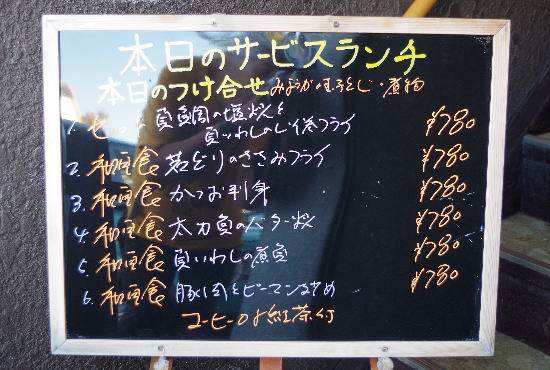 本日のサービスランチ
本日のつけ合せ みょうが ・煮物
1. セット 真鯛の塩焼と
真いわしのしそ巻フライ ¥780
2. 和定食 若どりのささみフライ ¥780
3. 和定食 かつお刺身 ¥780
4. 和定食 太刀魚のバター焼 ¥780
5. 和定食 真いわしの煮魚 ¥780
6. 和定食 豚肉とピーマン炒め ¥780
コーヒーor紅茶付